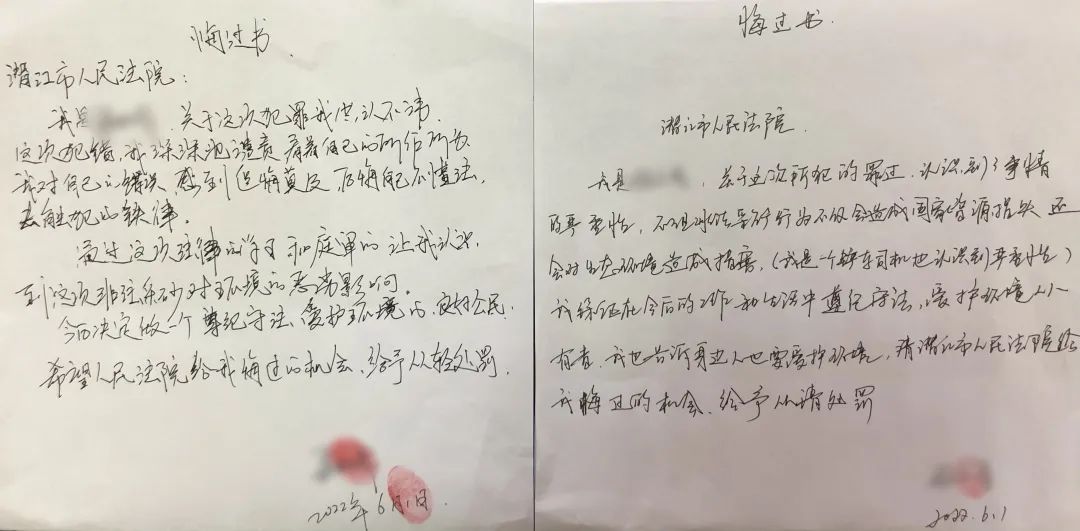 悔过书
潜江市人民法院：
我是 关于这次犯罪我供认不讳
这次犯错，我深深地谴责着自己的所作所为
我对自己的错误感到后悔莫及后悔自己不懂法，
去触犯的铁律。
通过这次法律的学习和庭审的让我认识
到这次非法采砂对环境的恶劣影响。
今后决定做一个尊纪守法、爱护环境的良好公民.
希望人民法院给我悔过的机会、给予从轻处罚.
2022年6月1日.
悔过书.
潜江市人民法院.
我是 ，关于这次所犯的罪过.认识到了事情
的严重性，不但行为不仅会造成国家资源损失还
会对生态环境造成损害，(我是一个司机也认识到严重性)
我保证在今后的工作和生活中遵纪守法、爱护环境人人
有责.我也告诉身边人也要爱护环境，请潜江市人民法院给
我悔过的机会、给予从轻处罚
2022.6.1